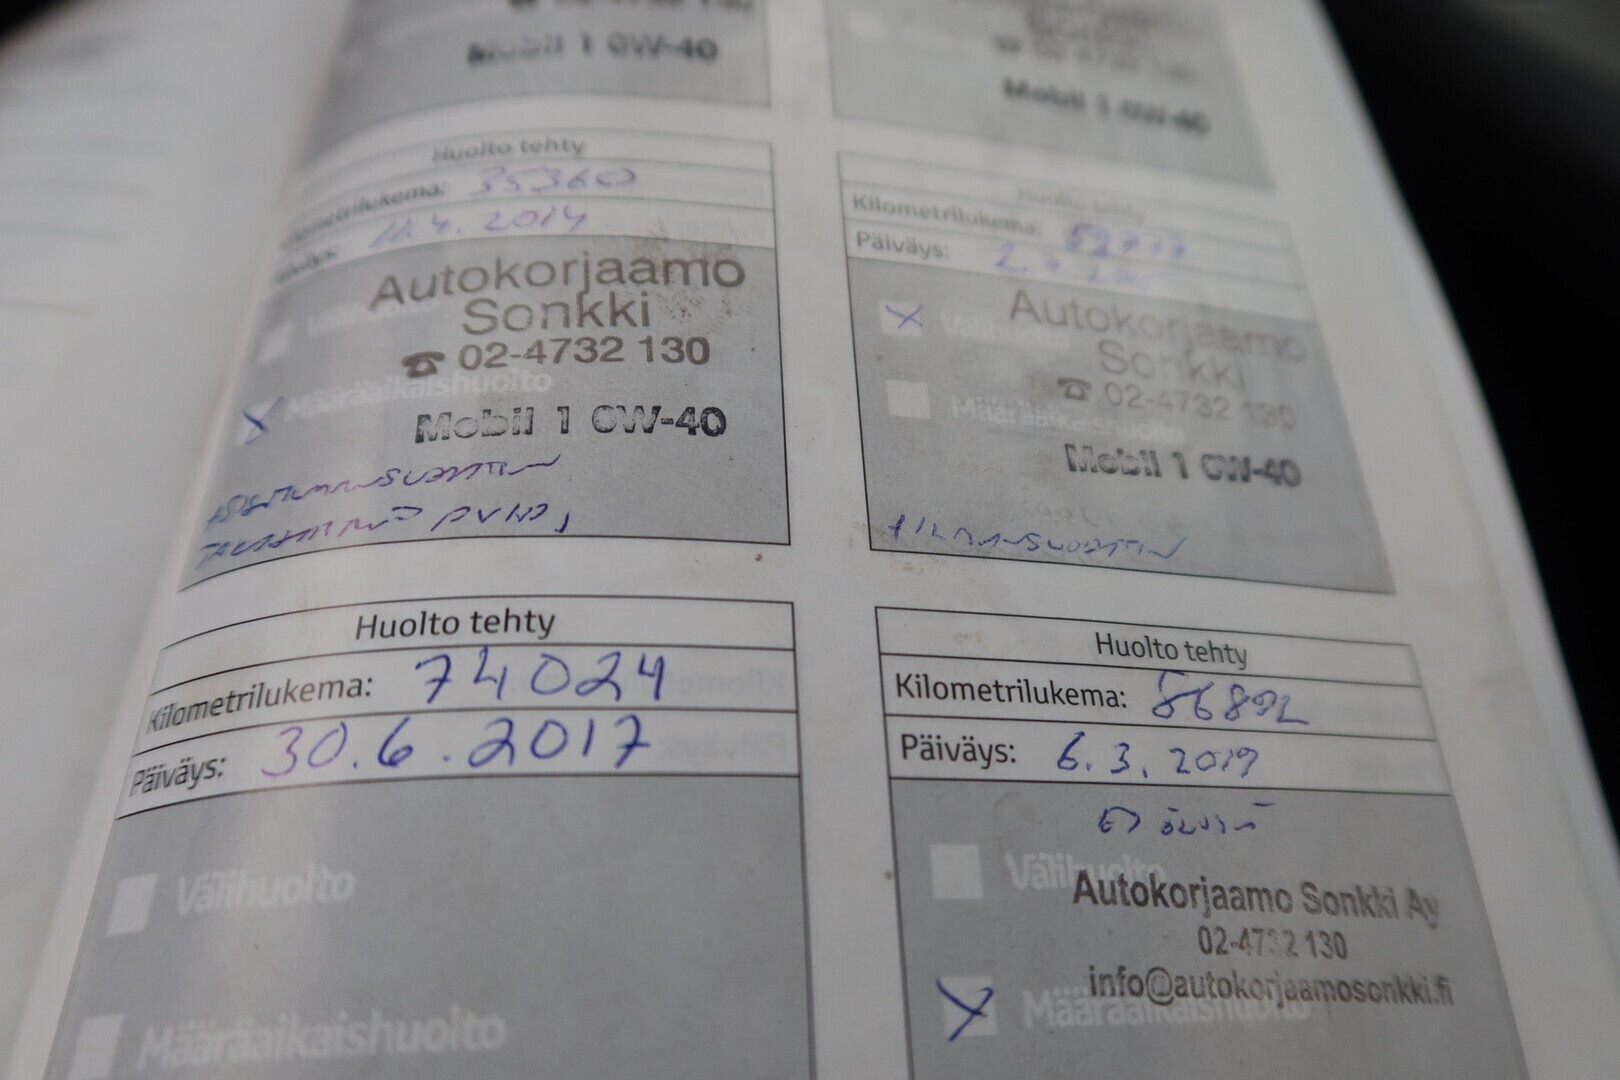 Mobil 1 0W-40
Mobil 1 0W-40
Huolto tehty
Kilometrilukema: 35360
Päiväys: 11.4.2014
Autokorjaamo
Sonkki
☎ 02-4732 130
Määräaikaishuolto
Mobil 1 0W-40
Huolto tehty
Kilometrilukema:
Päiväys:
Välihuolto
Autokorjaamo
Sonkki
☎ 02-4732 130
Määräaikaishuolto
Mobil 1 0W-40
Huolto tehty
Kilometrilukema: 74024
Päiväys: 30.6.2017
Välihuolto
Määräaikaishuolto
Huolto tehty
Kilometrilukema: 86892
Päiväys: 6.3.2019
Välihuolto
Autokorjaamo Sonkki Ay
02-4732 130
info@autokorjaamosonkki.fi
Määräaikaishuolto